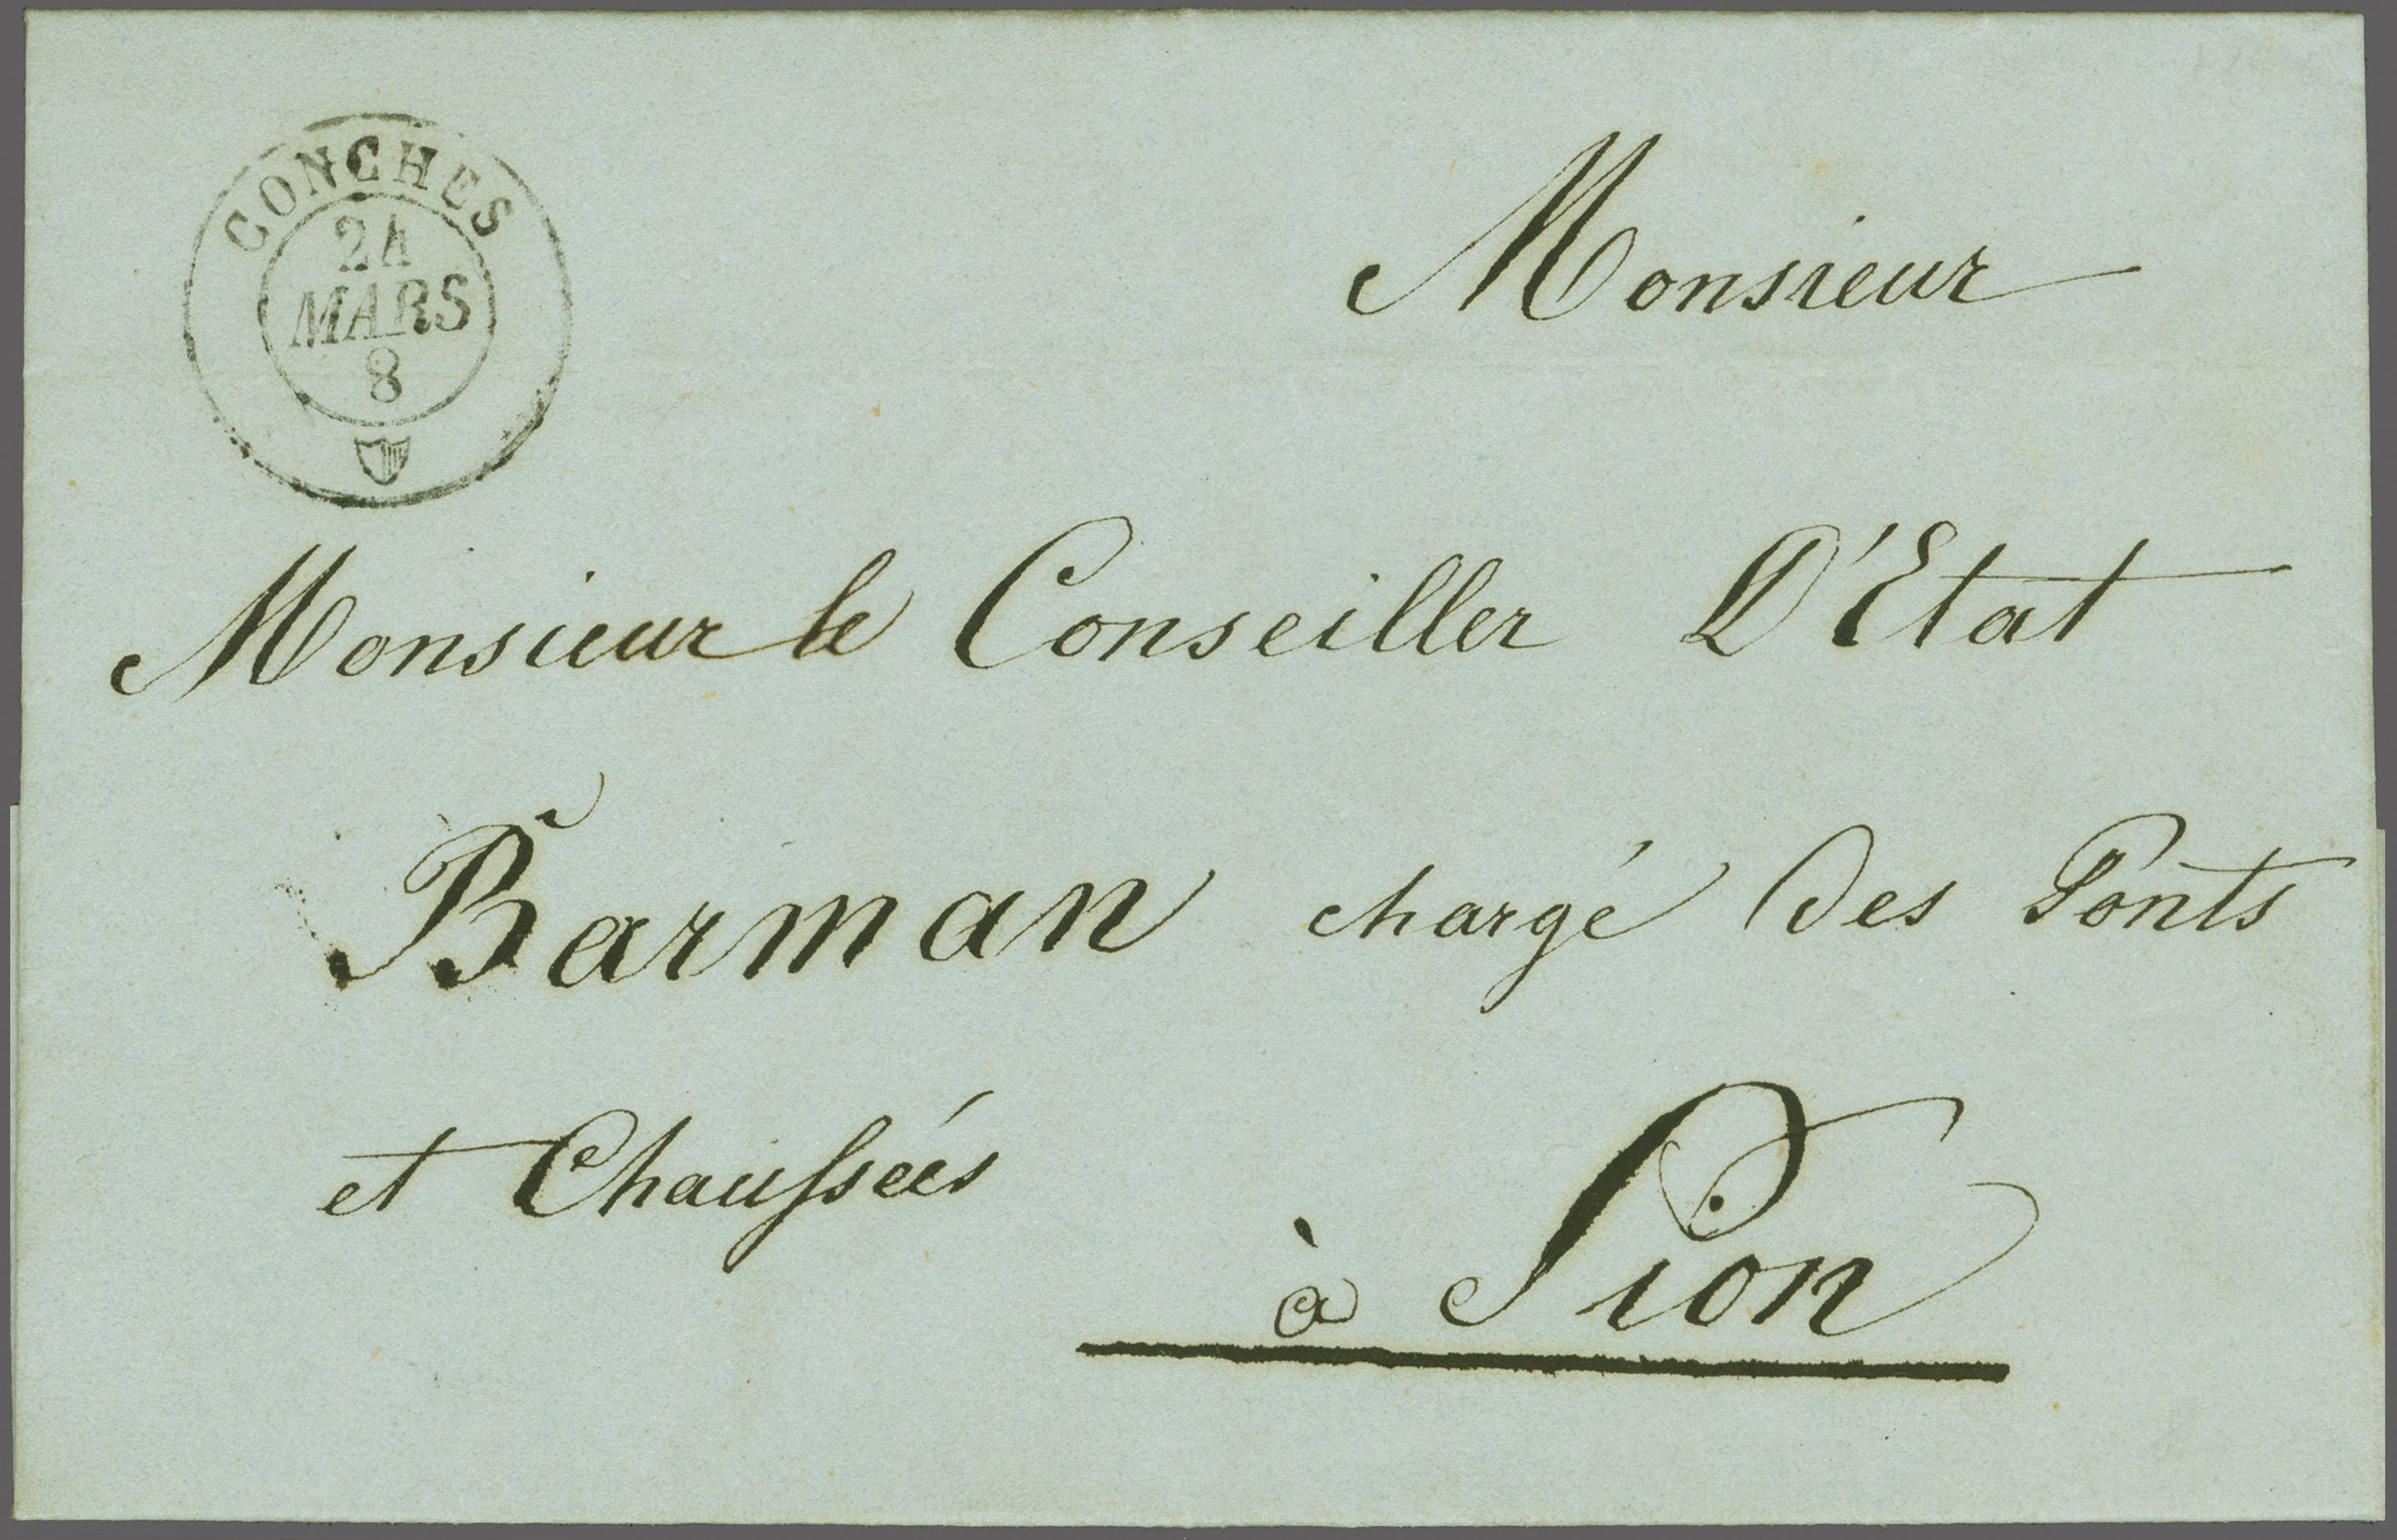 CONCHES
24
MARS
8
Monsieur
Monsieur le Conseiller D'Etat
Barman chargé des Ponts
et Chaussées
à Sion